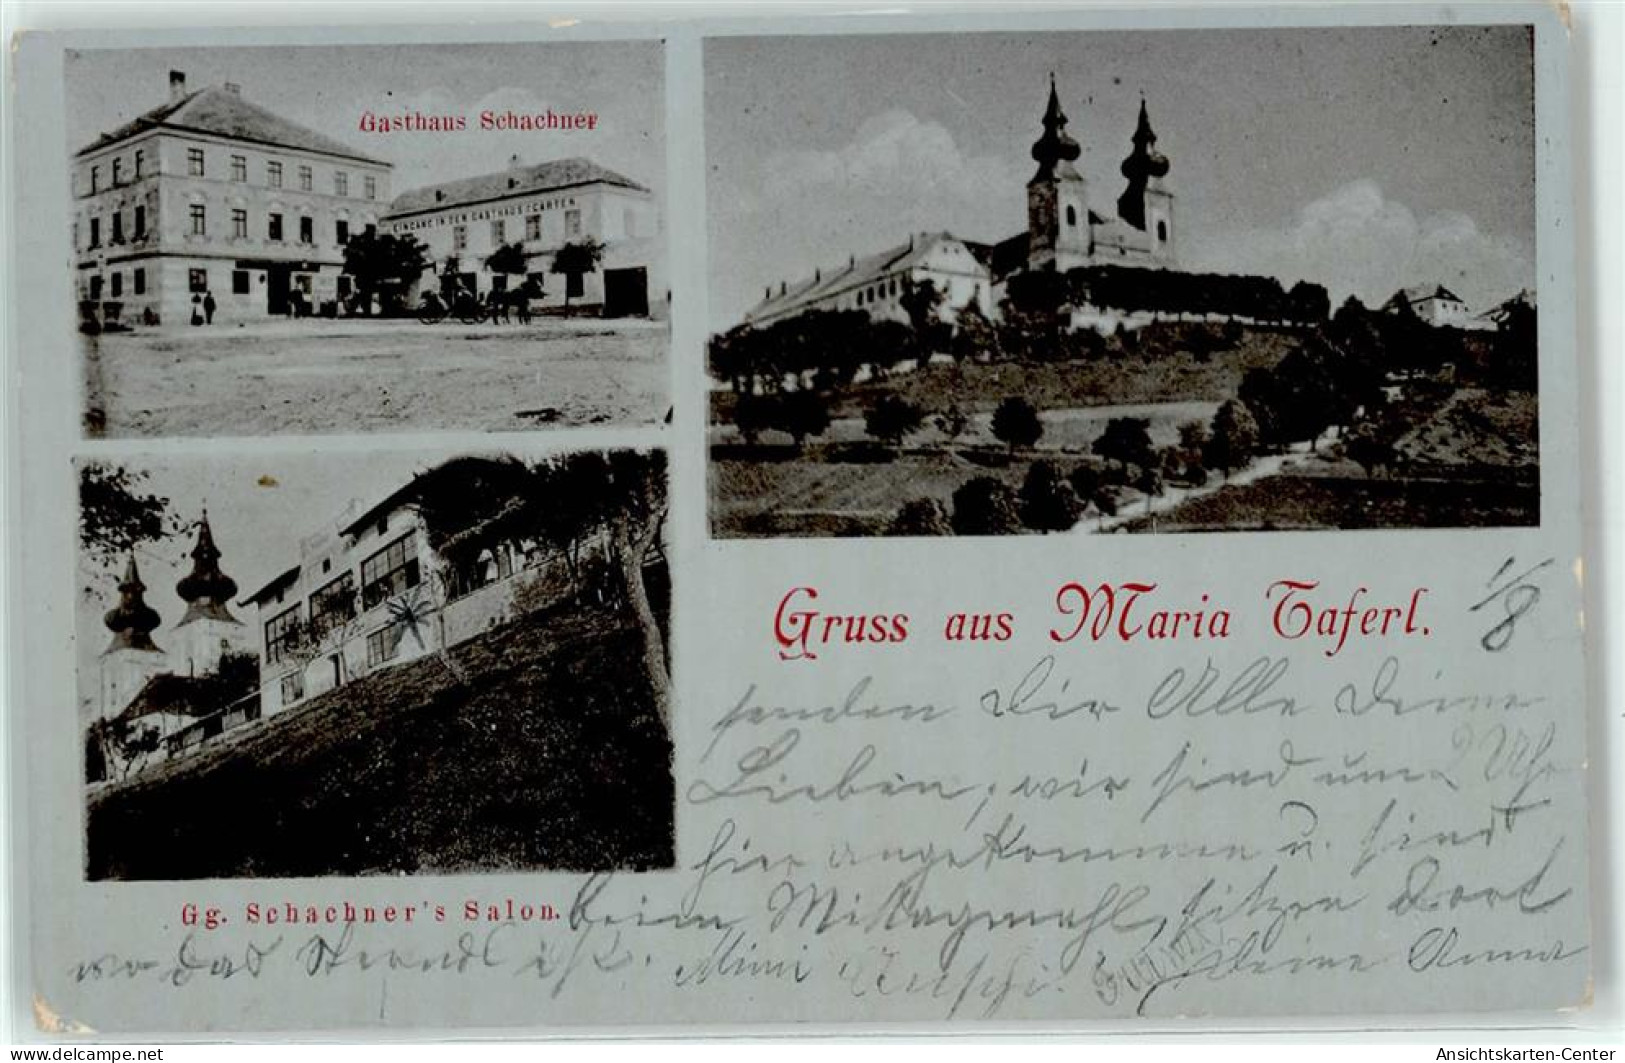 Gasthaus Schachner
EINGANG IN DEN GASTHAUSGARTEN
Gruss aus Maria Taferl. 1/8
senden Dir Alle Deine
Lieben, wir sind um 2 Uhr
hier angekommen u. sind
Gg. Schachner's Salon. beim Mittagmahl, sitzen dort
wo das ist. Mimi Deine Anna
Ansichtskarten-Center